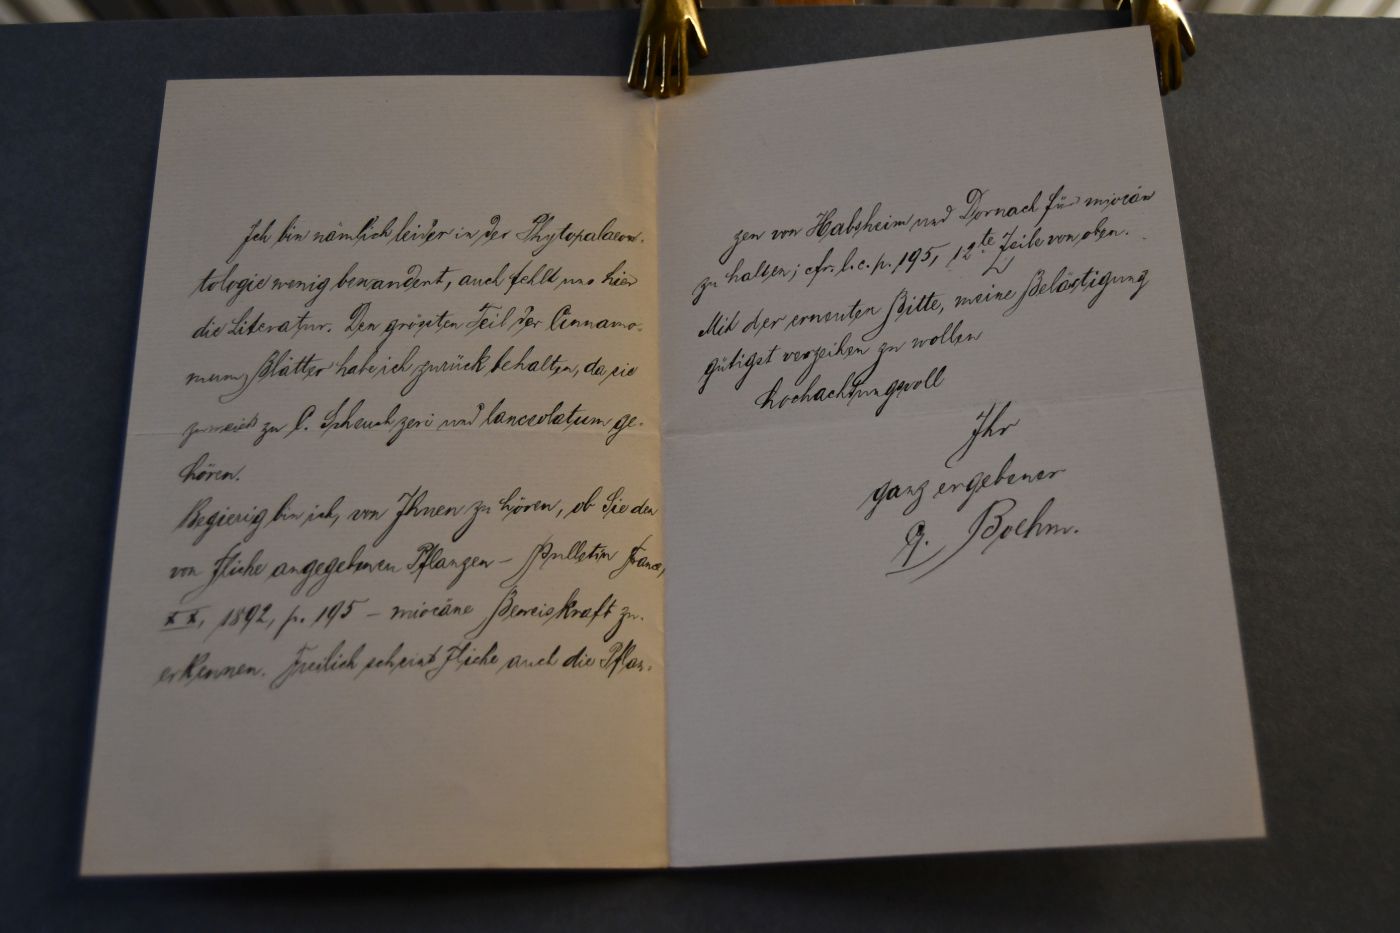 Ich bin nämlich leider in der Phytopalaeon-
tologie wenig bewandert, auch fehlt uns hier
die Literatur. Den grössten Teil der Cinnamo-
mum Blätter habe ich zurück behalten, da sie
zumeist zu C. Scheuchzeri und lanceolatum ge-
hören.
Begierig bin ich, von Ihnen zu hören, ob Sie den
von Fliche angegebenen Pflanzen – Bulletin France,
XX, 1892, p. 195 – miocäne Beweiskraft zu-
erkennen. Freilich scheint Fliche auch die Pflan-
zen von Habsheim und Dornach für miocän
zu halten; cfr. l. c. p. 195, 12te Zeile von oben.
Mit der erneuten Bitte, meine Belästigung
gütigst verzeihen zu wollen
hochachtungsvoll
Ihr
ganz ergebener
Boehm.